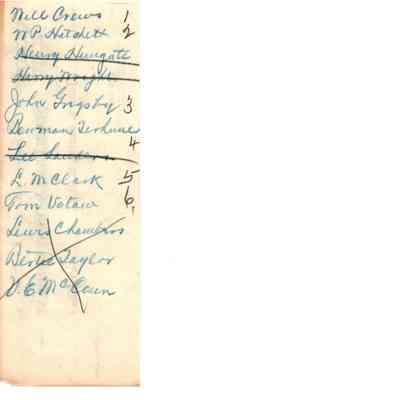 Will Crews 1
W P Hitchett 2
Henry Hungate
Harry Wright
John Grigsby 3
Penman Terhune 4
Lee Sanders
L. M Clark 5
Tom Votaw 6
Lewis Chambers
Bertie Taylor
V. E. McCoun